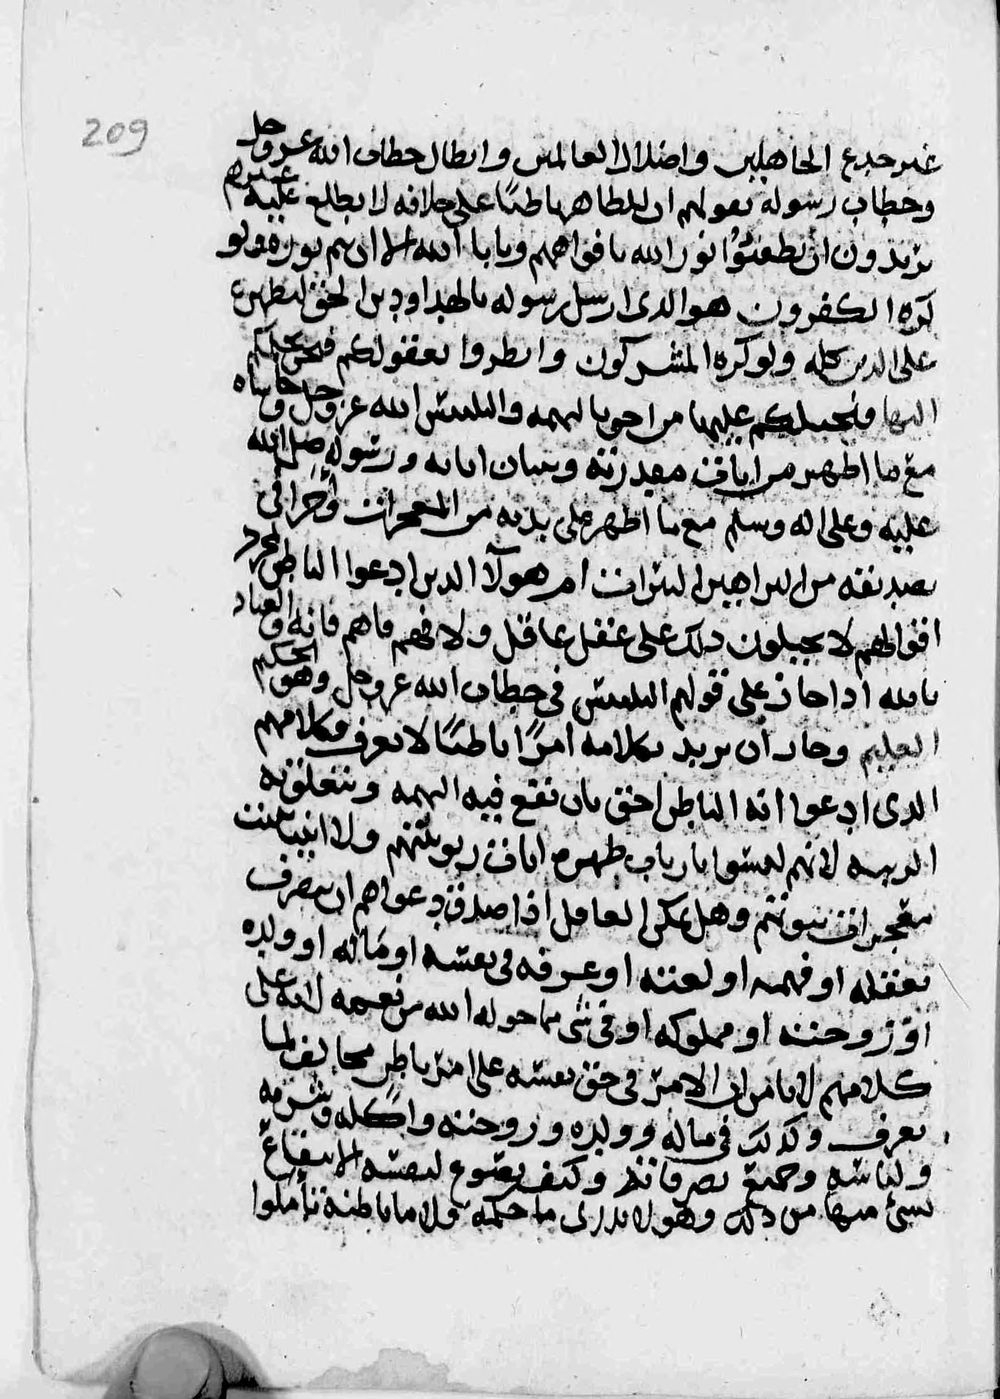 209
غير خدع الجاهلين واضلال العالمين وابطال خطاب الله عز وجل
وخطاب رسوله بقولهم ان للظاهر باطنا على خلافه لا يطلع عليه غيرهم
يريدون ان يطفئوا نور الله بافواههم ويابا الله الا ان يتم نوره ولو
كره الكفرون هو الذى ارسل رسوله بالهدا ودين الحق ليظهره
على الدين كله ولو كره المشركون وانظروا بعقولكم فنحن نحيلكم
اليها ونحيلكم عليها من احق بالتهمه والتلبيس الله عز وجل وحاشاه
مع ما اظهر من ايات مقدرته وبيان اياته ورسوله صلى الله
عليه وعلى اله وسلم مع ما اظهر على يديه من المعجزات واجرا فى
تصديقه من البراهين النيرات ام هولآء الذين ادعوا الباطن بمجرد
اقوالهم لا يحيلون ذلك على عقل عاقل ولا فهم فاهم فانه والعياذ
بالله اذا جاز على قولهم التلبيس فى خطاب الله عز وجل وهو الحكيم
العليم وجاز ان يريد بكلامه امرًا باطنًا لا يعرف فكلامهم
الذى ادعوا انه الباطن احق بان تقع فيه التهمه وتتعلق به
الريبه لانهم ليسوا بارباب ظهرت ايات ربوبيتهم ولا انبيا بينت
معجزات نبوتهم وهل يمكن العاقل اذا صدق دعواهم ان يتصرف
بعقله او فهمه او لغته او عرفه فى نفسه او ماله او ولده
او زوجته او مملوكه او فى شى مما خوله الله من نعمه لانه على
كلامهم لا يامن ان الامر فى حق نفسه على امر باطن مخالف لما
يعرف وكذلك فى ماله وولده وزوجته واكله وشربه
ولباسه وجميع تصرفاته وكيف يسوغ لنفسه الانتفاع
بشىء منها من ذلك وهو لا يدرى ما حكمه ولا ما باطنه تأملوا